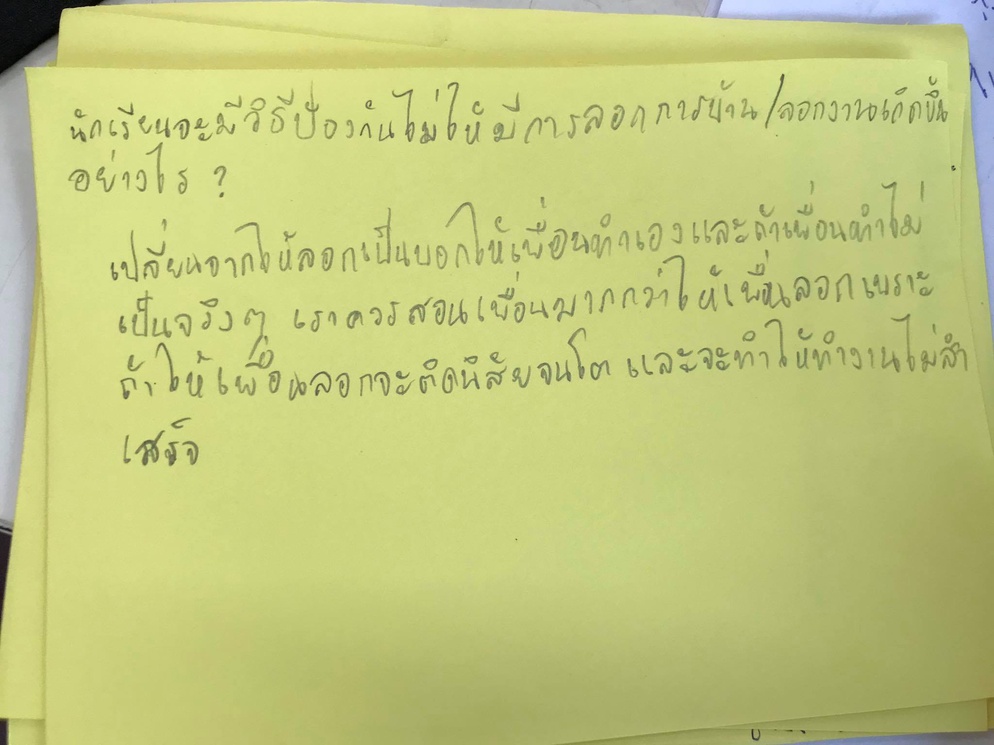 นักเรียนจะมีวิธีป้องกันไม่ให้มีการลอกการบ้าน/ลอกงานเกิดขึ้น
อย่างไร ?
เปลี่ยนจากให้ลอกเป็นบอกให้เพื่อนทำเองและถ้าเพื่อนทำไม่
เป็นจริงๆ เราควรสอนเพื่อนมากกว่าให้เพื่อนลอกเพราะ
ถ้าให้เพื่อนลอกจะติดนิสัยจนโต และจะทำให้ทำงานไม่สำ
เสร็จ